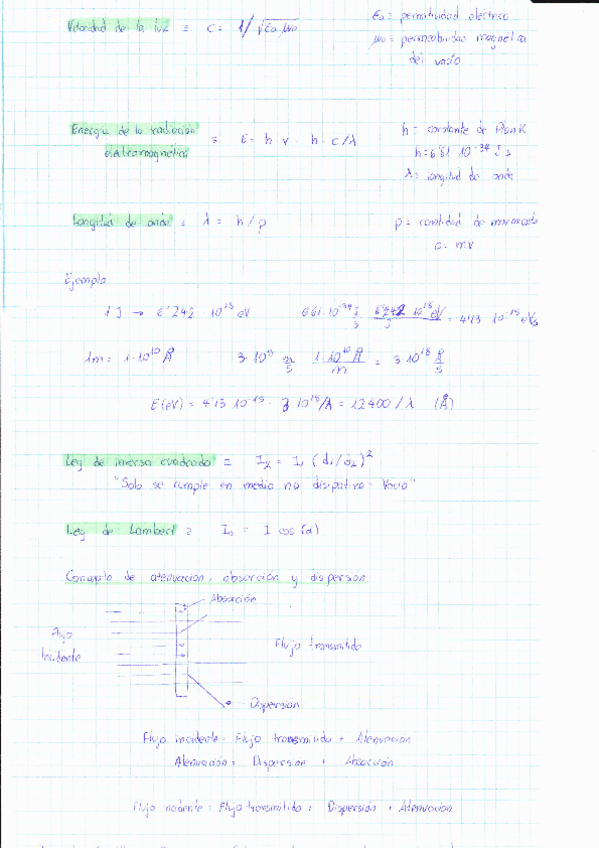 Velocidad de la luz ≡ c = 1/√εo μo
εo = permitividad eléctrica
μo = permeabilidad magnetica
del vacío
Energia de la radiación
electromagnética ≡ E = h · v · h · c/λ
h = constante de Plank
h = 6'61 10⁻³⁴ J s
λ = longitud de onda
Longitud de onda = λ = h / p
p = cantidad de movimiento
p = m·v
Ejemplo
1 J → 6'242 · 10¹⁸ eV
6'61 · 10⁻³⁴ J/s · 6'242 10¹⁸ eV/J = 4'13 10⁻¹⁵ eVs
1m = 1 · 10¹⁰ Å
3 · 10⁸ m/s · 1 10¹⁰ Å/m = 3 10¹⁸ Å/s
E(eV) = 4'13 10⁻¹⁵ · 3 10¹⁸/λ = 12400 / λ (Å)
Ley de inversa cuadrado = I₂ = I₁ (d₁/d₂)²
"Solo se cumple en medio no disipativo Vacio"
Ley de Lambert = I₀ = I cos(α)
Concepto de atenuacion, absorción y dispersion
Absorción
Flujo
Incidente
Flujo transmitido
Dispersion
Flujo incidente = Flujo transmitido + Atenuacion
Atenuación = Dispersion + Absorción
Flujo incidente = Flujo transmitido + Dispersión + Atenuacion